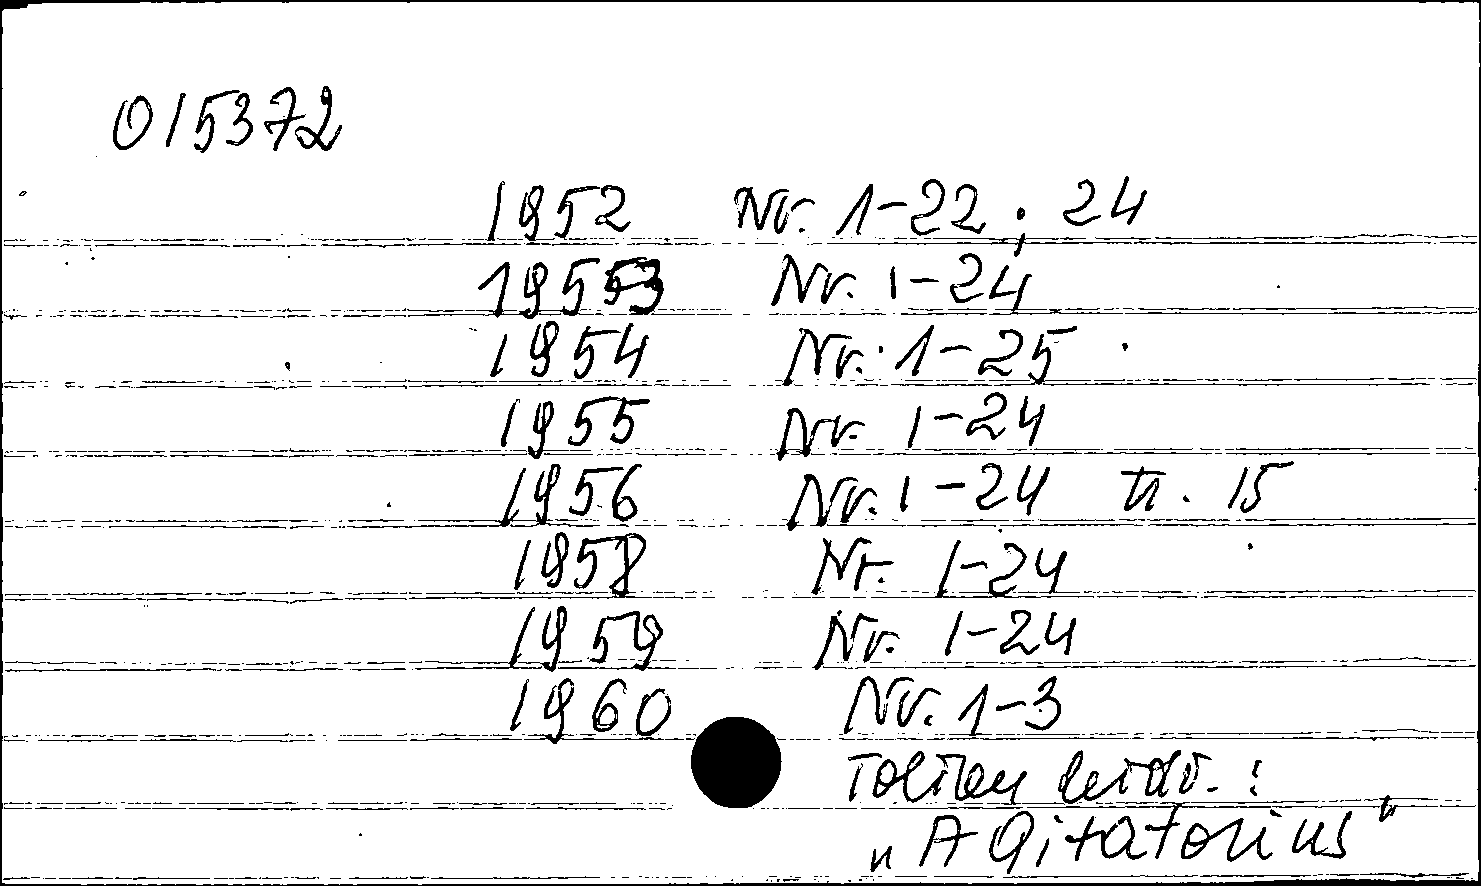 015372
1952 Nr. 1-22; 24
1953 Nr. 1-24
1954 Nr. 1-25
1955 Nr. 1-24
1956 Nr. 1-24 tr. 15
1958 Nr. 1-24
1959 Nr. 1-24
1960 Nr. 1-3
Toliau leidž.:
„Agitatorius"